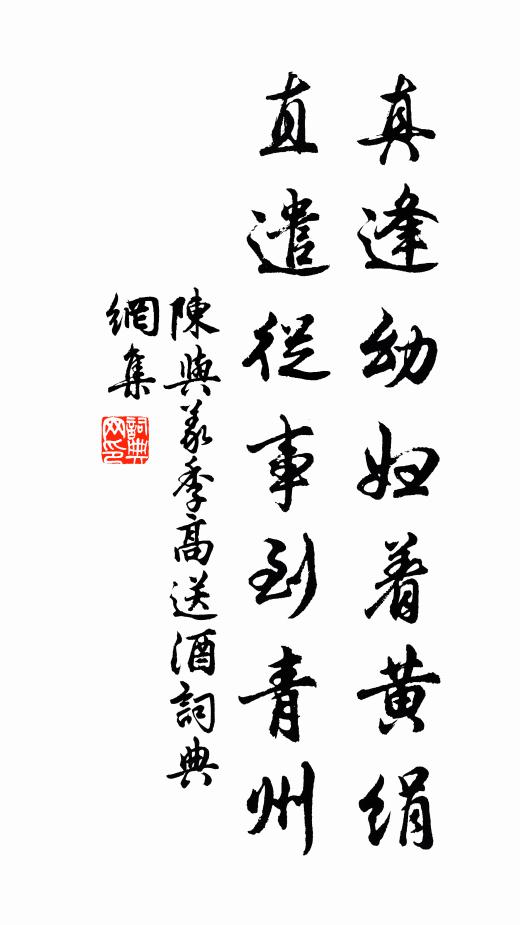 真逢幼妇着黄绢
直遣從事到青州
陳與義季高送酒詞典
網集
詞典網印